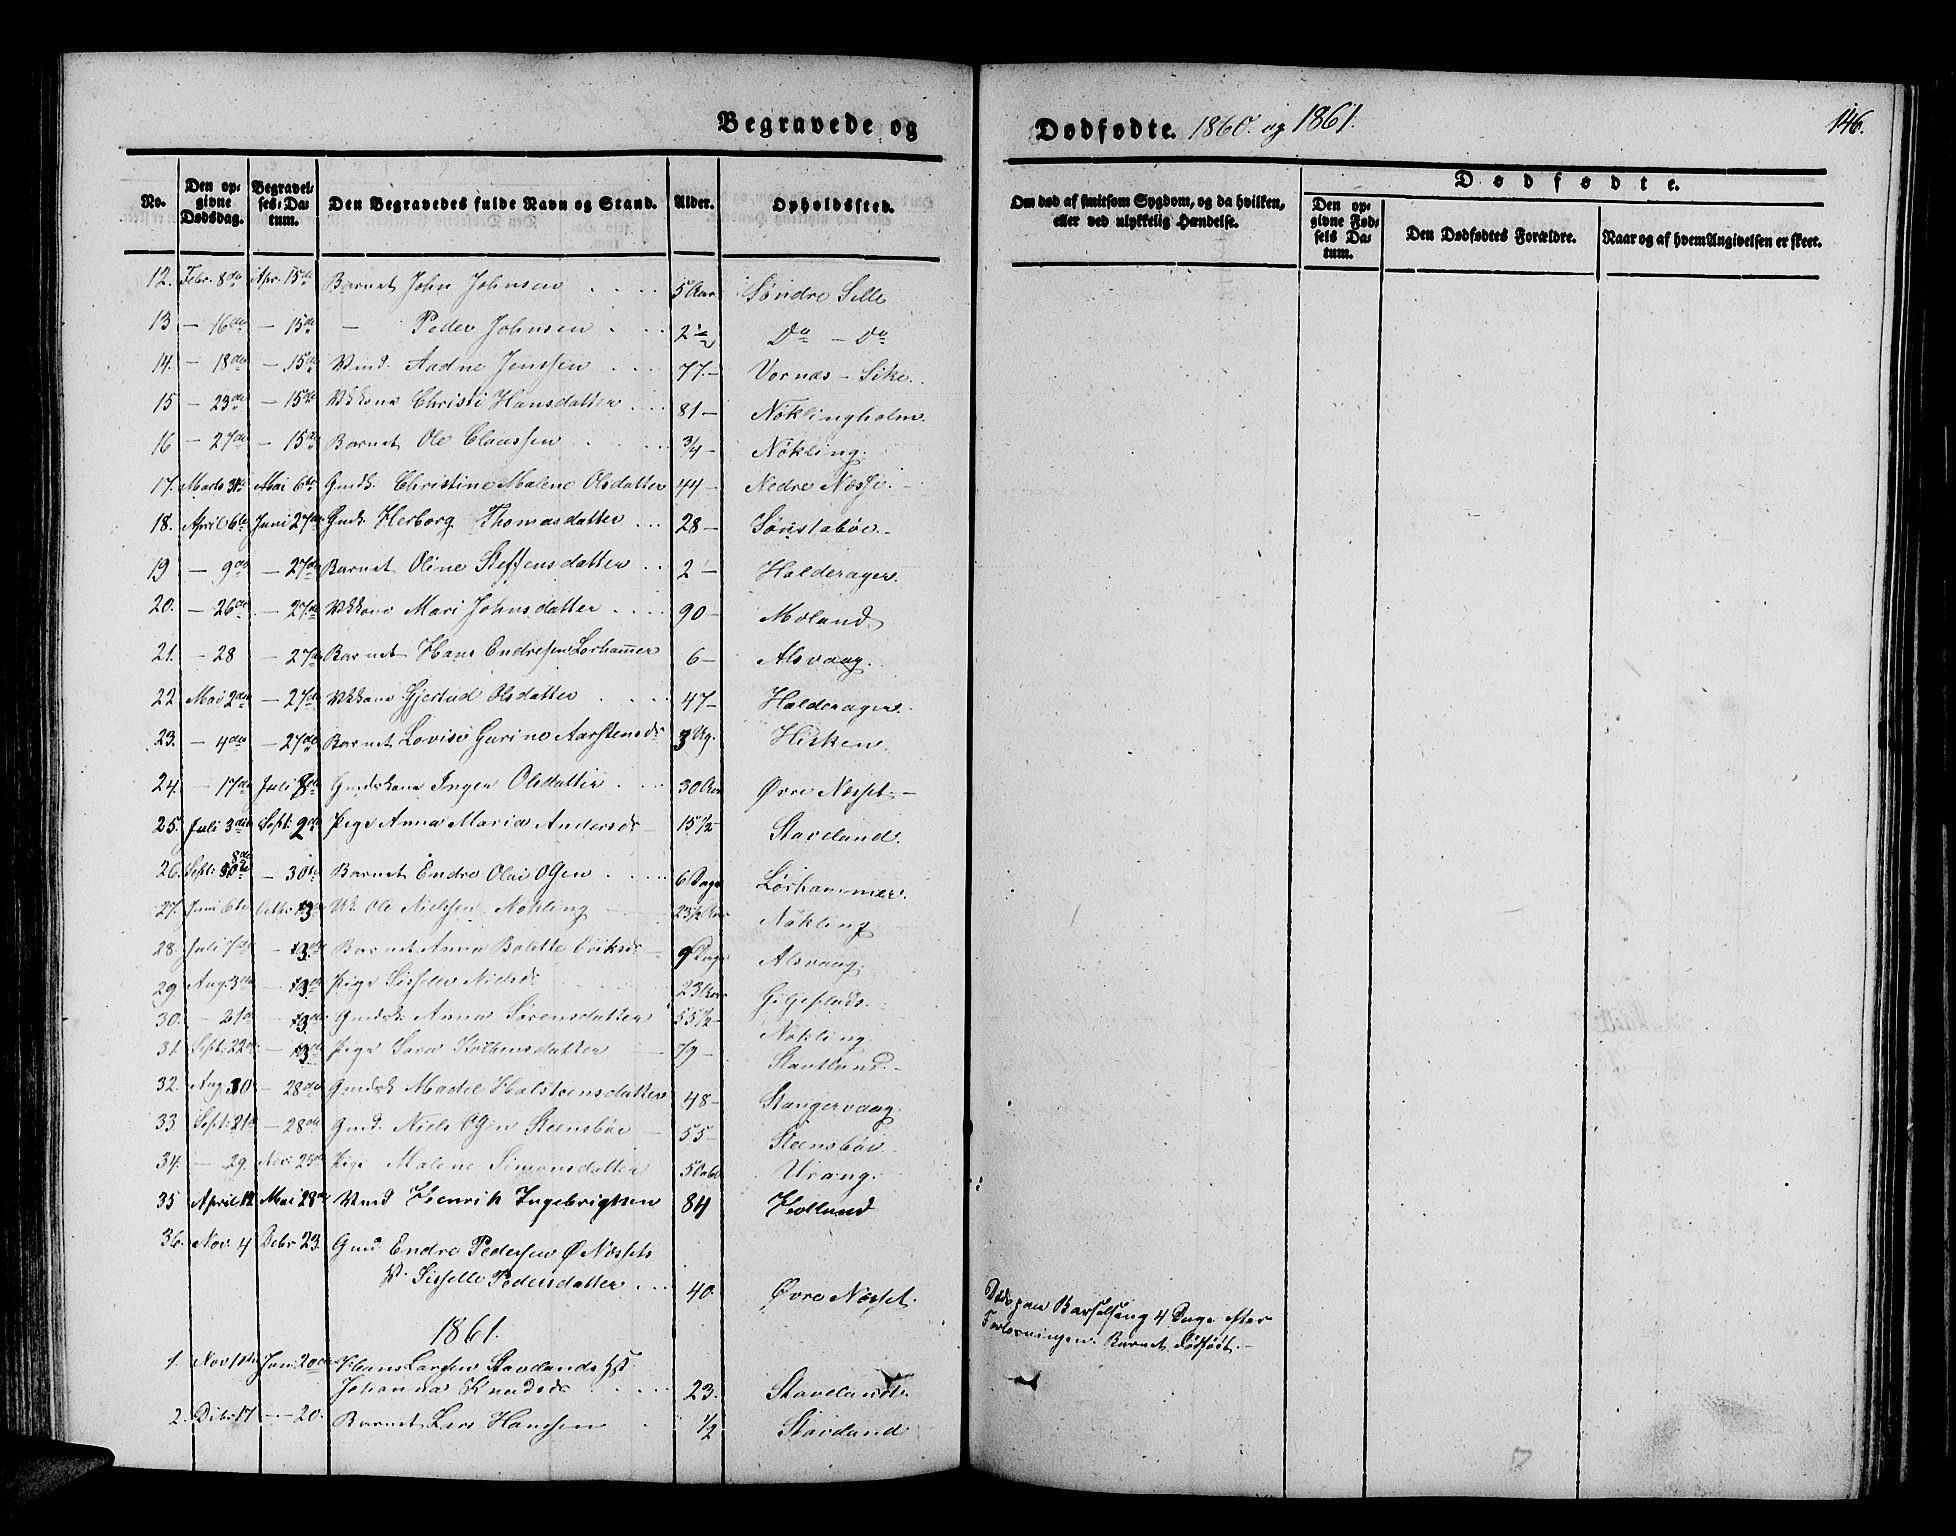 Begravede og
Dødfødte. 1860. og 1861.
146.
No.
Den opgivne Dødsdag.
Begravelses-Datum.
Den Begravedes fulde Navn og Stand.
Alder.
Opholdssted.
Om død af smitsom Sygdom, og da hvilken, eller ved ulykkelig Hændelse.
Dødfødte.
Den opgivne Fødsels Datum.
Den Dødfødtes Forældre.
Naar og af hvem Angivelsen er skeet.
12. Febr. 8de Apr. 15de Barnet John Johnsen 5 Aar Søndre Selle
13 — 16de — 15de — Peder Johnsen 2½ Do — Do
14. — 18de — 15de Vmd. Aadne Jenssen 77 — Vornæs — Sike
15 — 23de — 15de Christi Hansdatter 81 — Nøklingholm
16 — 27de — 15de Barnet Ole Claussen 3/4 — Nøkling.
17. Marts Mai 6te Gmdk. Christine Malene Olsdatter 44 — Nedre Næsse
18. April 6te Juni 27de Gmdk. Herborg Thomasdatter 28 — Sønstabøe
19 — 9de — 27de Barnet Oline Steffensdatter 2 — Halderager.
20. — 26de — 27de Mari Johnsdatter 90 — Moland
21. — 28 — 27de Barnet Hans Endresen Lorhammer 6 — Alsvaag.
22 Mai 2den — 27de Gjertud Olsdatter 47 — Halderager.
23. — 4de — 27de Barnet Lovise Gurine Aarstensdr 3 Ug. Hisken
24. — 17de Juli 8de Gmdskone Inger Olsdatter 30 Aar Øvre Næsset —
25. Juli 3die Sept: 2den Pige Anna Maria Andersdr 15½ Stavland.
26. Sept: 8de — 30te Barnet Endre Olai Olsen 6 Dage Lørhammer.
27. Juni 6te Octbr. 13de Ole Nielsen Nøkling 23½ Aar Nøkling
28. Juli 7de — 13de Barnet Anna Bolette Eriksdr 9 Dage Alsvaag
29. Aug. 3de — 13de Pige Sisselle Nielsdr 23 Aar
30. — 21de — 13de Gmdsk. Anna Sørensdatter 55½ Nøkling
31. Sept: 22de — 13de Pige Sara Kolbensdatter Stavland
32. Aug. 30 — 28de Gmdsk Madel Halsteensdatter 48 — Stangervaag
33 Sept: 21de — 28de Gmd. Niels Olsen Steensbøe 55 — Steensbøe
34. — 29. Nov: 25de Pige Malene Simonsdatter 50 Urang.
35 April 12 Mai 28de Vmd Henrik Ingebrigtsen 84 Holland
36. Nov. 4 Debr 23. Gmd Endre Pedersen Ø Næssets
Sisselle Pedersdatter 40 Øvre Næsset.
Døde paa Barselseng 4 Dage efter
Forløsningen. Barnet dødfødt.
1861.
1. Nov. Jan: 20de Hans Larsen Stavelands
Johanna Knudsdr 23. Stavelands
2. Debr: 17 — 20. Barnet Lars Hansen 1/2 Stavland